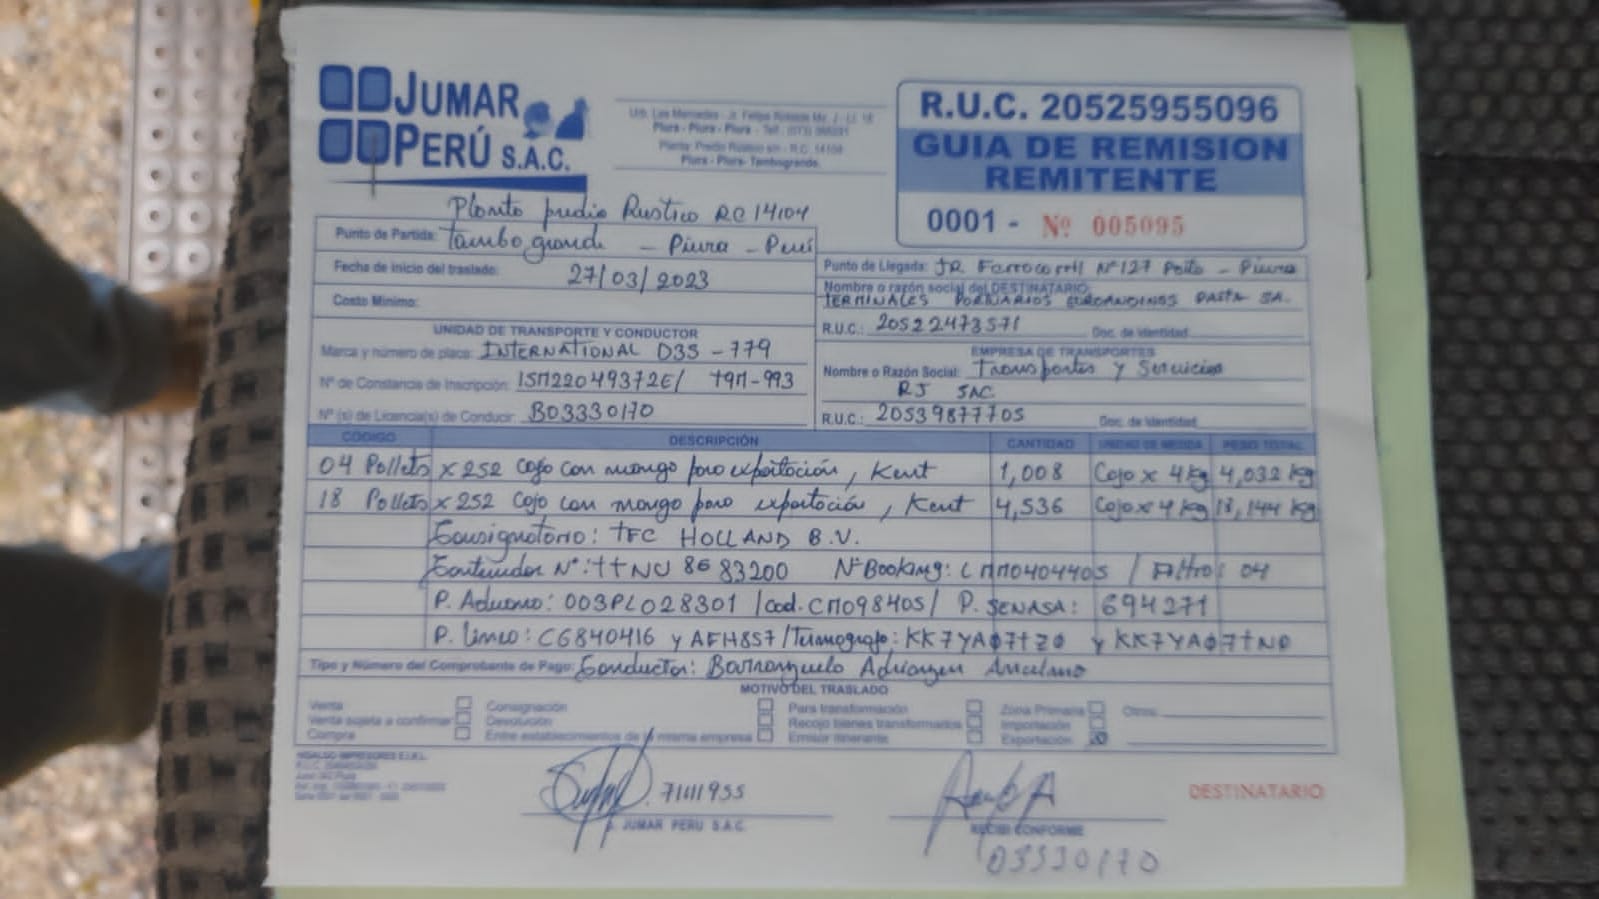 JUMAR
PERÚ S.A.C.
Piura - Piura - Piura - Telf.: (073)
Planta: Predio Rústico s/n - R.C. 14104
Piura - Piura - Tambogrande
R.U.C. 20525955096
GUIA DE REMISION
REMITENTE
0001 - Nº 005095
Planta predio Rustico RC 14104
Punto de Partida: Tambo grande - Piura - Perú
Fecha de inicio del traslado: 27/03/2023
Costo Mínimo:
Punto de Llegada: JR. Ferrocarril Nº 127 Paita - Piura
Nombre o razón social del DESTINATARIO:
TERMINALES PORTUARIOS EUROANDINOS PAITA SA.
R.U.C.: 20522473571 Doc. de Identidad
UNIDAD DE TRANSPORTE Y CONDUCTOR
Marca y número de placa: INTERNATIONAL D3S - 779
Nº de Constancia de Inscripción: 15M22049372E/ T9M-993
Nº (s) de Licencia(s) de Conducir: B03330170
EMPRESA DE TRANSPORTES
Nombre o Razón Social: Transportes y Servicios
RJ SAC
R.U.C.: 20539877705 Doc. de Identidad
CÓDIGO DESCRIPCIÓN CANTIDAD UNIDAD DE MEDIDA PESO TOTAL
04 Pallets x 252 Caja con mango para exportación, Kent 1,008 Caja x 4 kg 4,032 kg
18 Pallets x 252 Caja con mango para exportación, Kent 4,536 Caja x 4 kg 18,144 kg
Consignatario: TFC HOLLAND B.V.
Contenedor Nº: TTNU 8683200 Nº Booking: LMM0404405 / Filtro: 04
P. Aduana: 003PL028301 / cod. CM098405 / P. SENASA: 694271
P. Linea: C6840416 y AFH857 / Termografo: KK7YA07TZ0 y KK7YA07TN0
Tipo y Número del Comprobante de Pago: Conductor: Barranzuela Adrianzen Ancelmo
MOTIVO DEL TRASLADO
Venta Consignación Para transformación Zona Primaria Otros
Venta sujeta a confirmar Devolución Recojo bienes transformados Importación
Compra Entre establecimientos de la misma empresa Emisor itinerante Exportación
HIDALGO IMPRESORES E.I.R.L.
71111955
p. JUMAR PERU S.A.C.
RECIBI CONFORME
03330170
DESTINATARIO